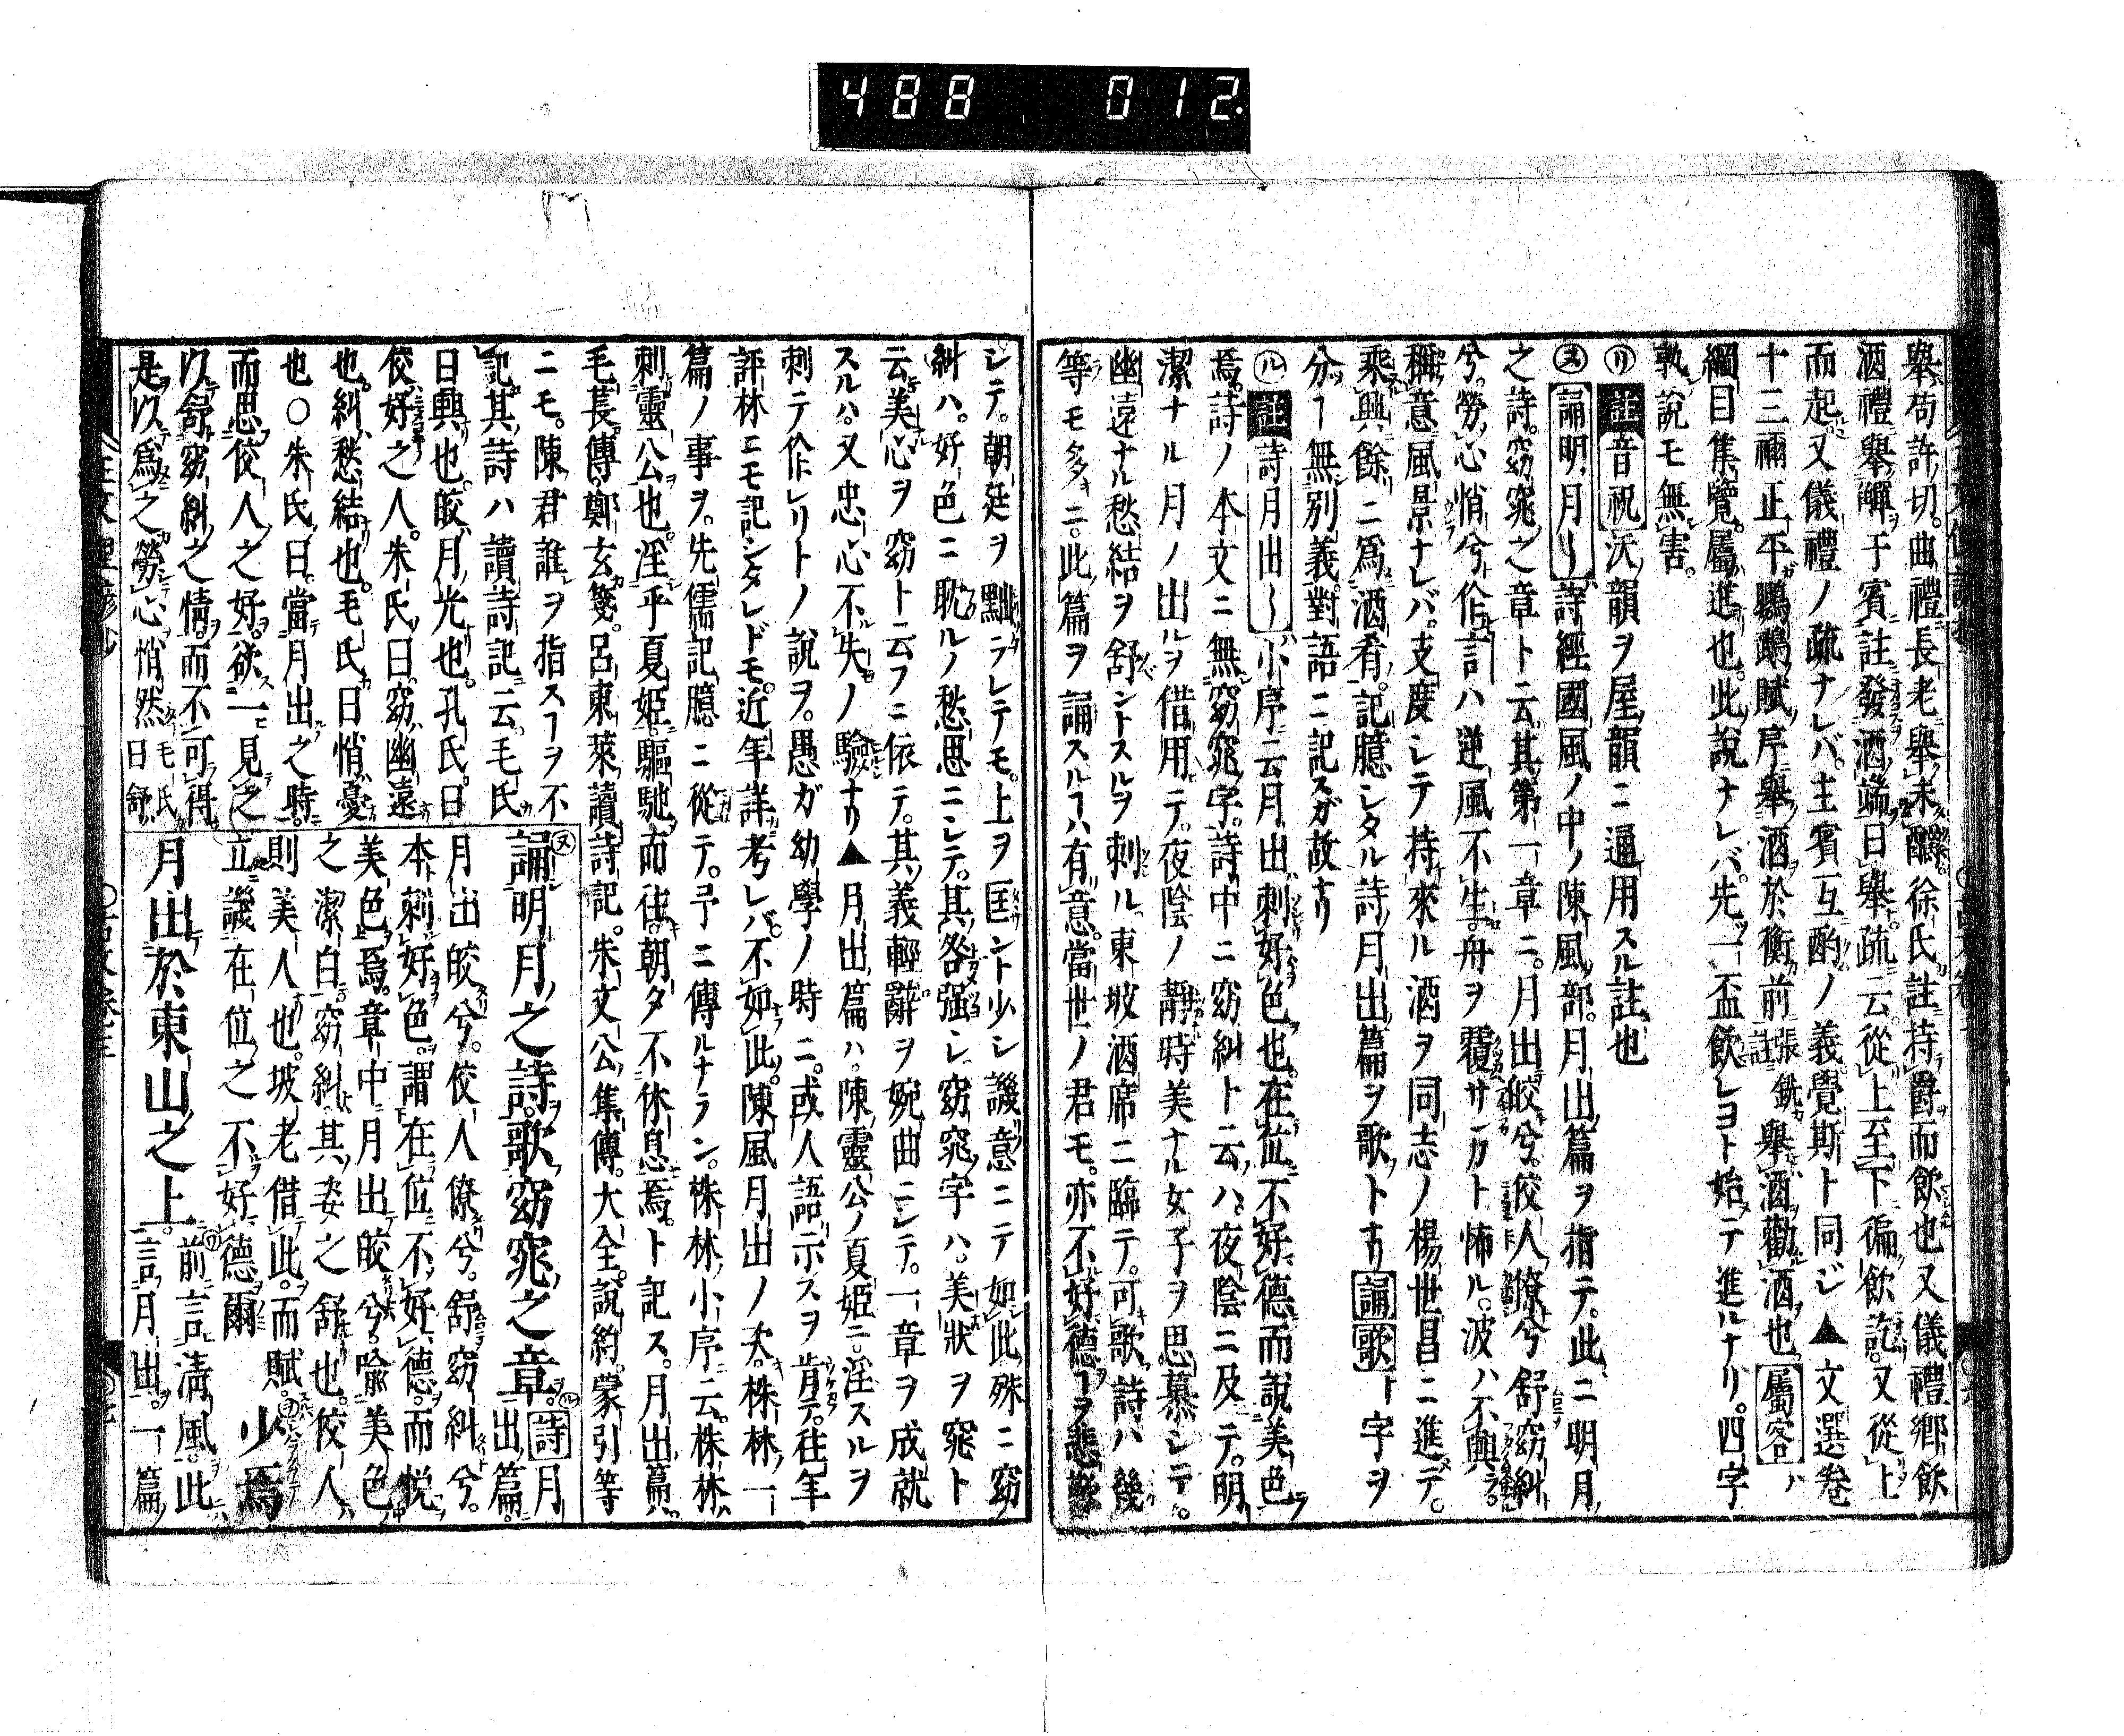 488 012.
擧苟許切。曲禮長老擧未釂。徐氏註持爵而飮也又儀禮鄕飮
酒禮擧觶于賓註發酒端曰擧疏云從上至下徧飮訖又從上
而起又儀禮ノ疏ナレバ主賓互酌ノ義覺斯ト同ジ▲文選卷
十三禰正平鸚鵡賦序擧酒於衡前張銑註擧酒勸酒也屬客ハ
綱目集覽屬進也。此說ナレバ先一盃飮レヨト始テ進ルナリ。四字
孰說モ無害。
リ註音祝沃韻ヲ屋韻ニ通用スル註也
ヌ誦明月〱詩經國風ノ中ノ陳風部月出篇ヲ指テ此ニ明月
之詩。窈窕之章ト云其第一章ニ。月出皎兮。佼人僚兮舒窈糾
兮。勞心悄兮作言ハ逆風不生。舟ヲ覆サンカト怖ル。波ハ不興。
稱意風景ナレバ。支度シテ持來ル酒ヲ同志ノ楊世昌ニ進テ。
乘興餘ニ爲酒肴。記臆シタル詩月出篇ヲ歌トナリ誦歌ト字ヲ
分ヿ無別義。對語ニ記スガ故ナリ
ル註詩月出〱小序ニ云月出刺好色也。在位不好德而說美色
焉。詩ノ本文ニ無窈窕字。詩中ニ窈糾ト云ハ。夜陰ニ及テ。明
潔ナル月ノ出ルヲ借用テ。夜陰ノ靜時美ナル女子ヲ思慕シテ。
幽遠ナル愁結ヲ舒ントスルヲ刺ル。東坡酒席ニ臨テ。可歌詩ハ幾
等モ多キニ。此篇ヲ誦スルハ有意。當世ノ君モ。亦不好德ヿヲ悲歎
シテ。朝廷ヲ黜ラレテモ。上ヲ匡ント少シ譏意ニテ如此殊ニ窈
糾ハ。好色ニ耽ルノ愁思ニシテ。其咎强シ窈窕字ハ。美狀ヲ窕ト
云美心ヲ窈ト云フニ依テ。其義輕辭ヲ婉曲ニシテ。一章ヲ成就
スルハ。又忠心不失ノ驗ナリ▲月出篇ハ。陳靈公ノ夏姬ニ。淫スルヲ
刺テ作レリトノ說ヲ。愚ガ幼學ノ時ニ。或人語示スヲ肯テ。往年
評林ニモ記シタレドモ。近年詳考レバ。不如此。陳風月出ノ次。株林ノ一
篇ノ事ヲ。先儒記臆ニ從テ。予ニ傳ルナラン。株林小序ニ云。株林
刺靈公也。淫乎夏姬。驅馳而往。朝夕不休息焉。ト記ス。月出篇ハ
毛萇傳。鄭玄箋。呂東萊讀詩記。朱文公集傳。大全。說約。蒙引等
ニモ。陳君誰ヲ指スヿヲ不
記其詩ハ讀詩記云。毛氏
曰興也。皎月光也。孔氏曰
佼好之人。朱氏曰窈幽遠
也。糾愁結也。毛氏曰悄憂
也〇朱氏曰。當月出之時。
而思佼人之好。欲一見之
以舒窈糾之情。而不可得。
是以爲之。勞心悄然毛氏曰舒
ヌ誦明月之詩。歌窈窕之章。ル詩月
出篇。
月出皎兮。佼人僚兮。舒窈糾兮。
本刺好色。謂在位不好德。而悅
美色焉。章中月出皎兮。喩美色
之潔白。窈糾其姿之舒也。佼人
則美人也。坡老借此。而賦。少焉
立譏在位之不好德爾
月出於東山之上。前言淸風。此
言月出。一篇